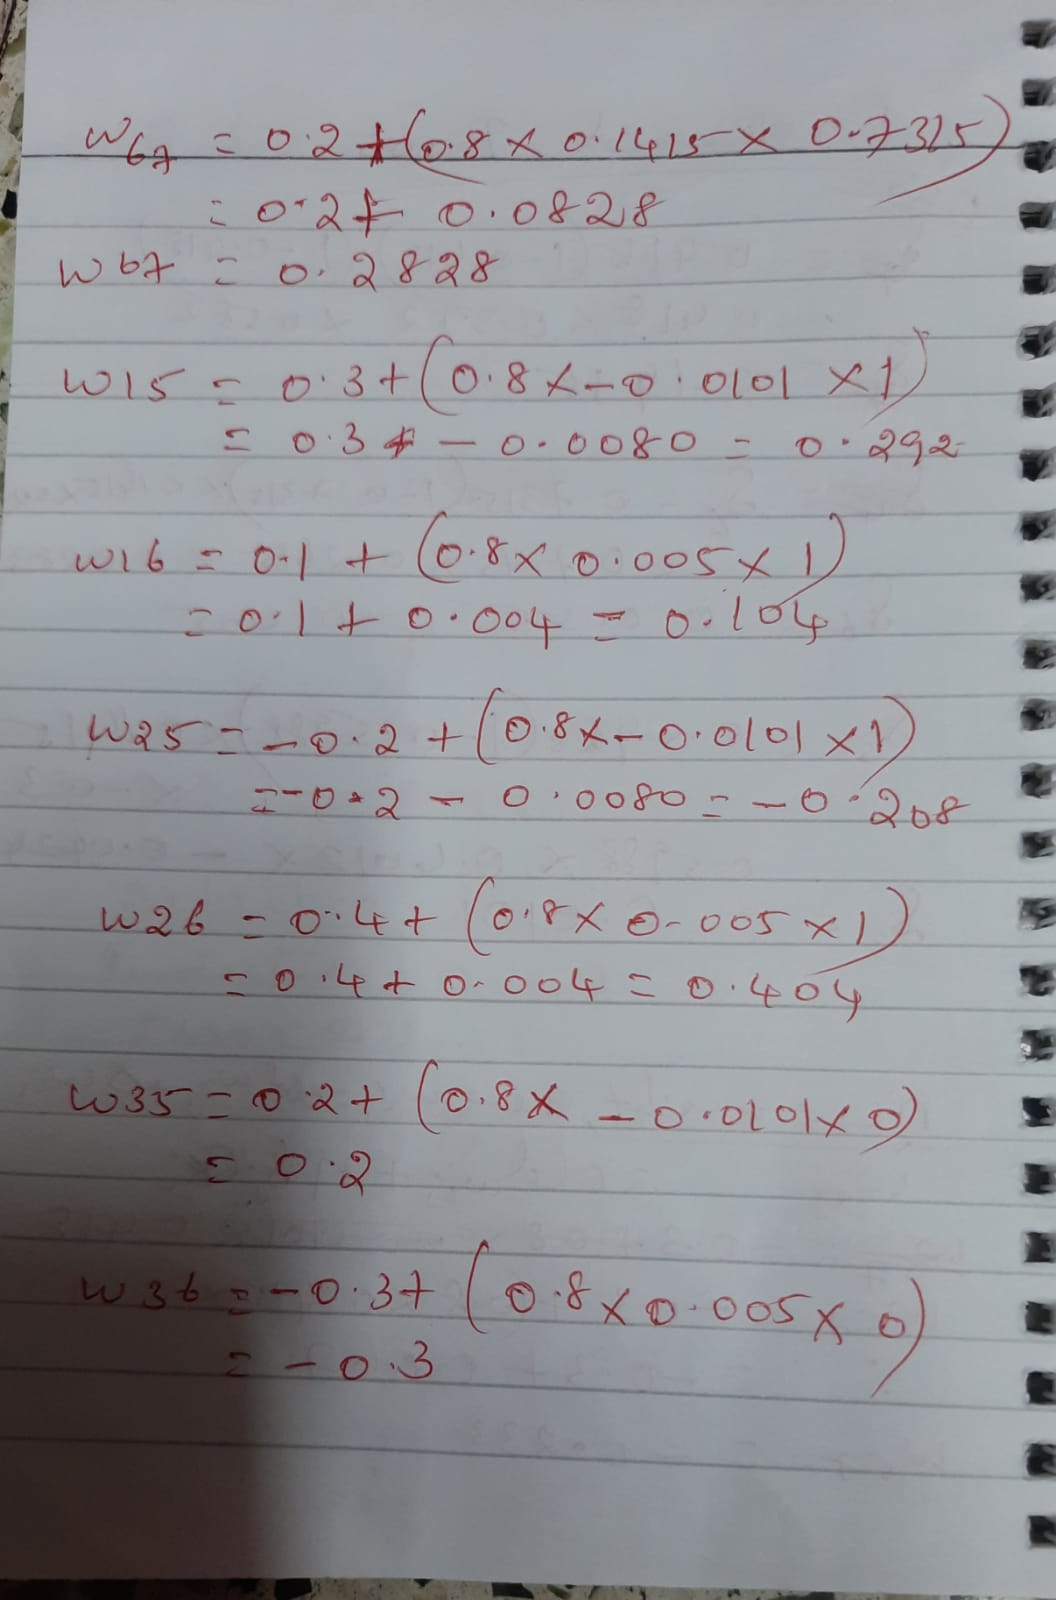 w67 = 0.2 + (0.8 × 0.1415 × 0.7315)
= 0.2 + 0.0828
w67 = 0.2828
w15 = 0.3 + (0.8 × -0.0101 × 1)
= 0.3 - 0.0080 = 0.292
w16 = 0.1 + (0.8 × 0.005 × 1)
= 0.1 + 0.004 = 0.104
w25 = -0.2 + (0.8 × -0.0101 × 1)
= -0.2 - 0.0080 = -0.208
w26 = 0.4 + (0.8 × 0.005 × 1)
= 0.4 + 0.004 = 0.404
w35 = 0.2 + (0.8 × -0.0101 × 0)
= 0.2
w36 = -0.3 + (0.8 × 0.005 × 0)
= -0.3